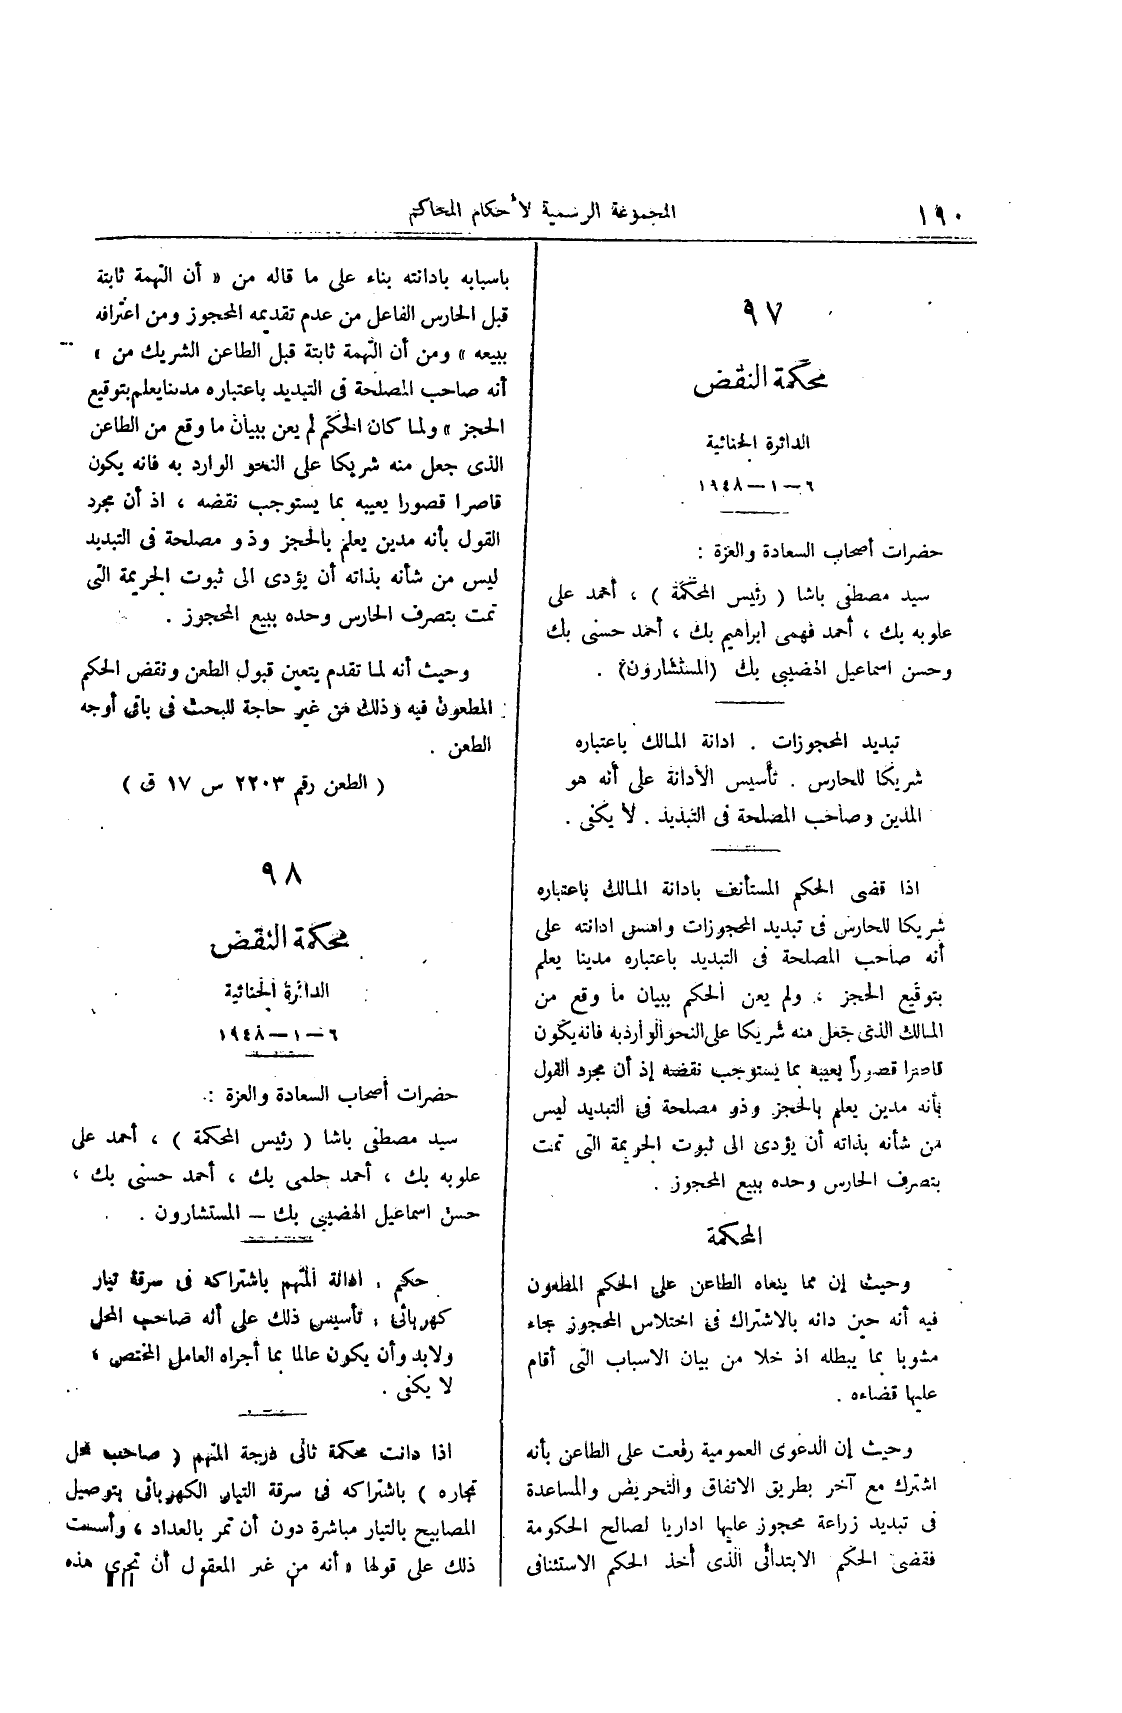 ١٩٠
المجموعة الرسمية لأحكام المحاكم
٩٧
محكمة النقض
الدائرة الجنائية
٦ – ١ – ١٩٤٨
حضرات أصحاب السعادة والعزة :
سيد مصطفى باشا ( رئيس المحكمة ) ، أحمد على
علوبه بك ، أحمد فهمى ابراهيم بك ، أحمد حسنى بك
وحسن اسماعيل الهضيبى بك (المستشارون) .
تبديد المحجوزات . ادانة المالك باعتباره
شريكا للحارس . تأسيس الأدانة على أنه هو
المدين وصاحب المصلحة فى التبديد . لا يكفى .
اذا قضى الحكم المستأنف بادانة المالك باعتباره
شريكا للحارس فى تبديد المحجوزات واسس ادانته على
أنه صاحب المصلحة فى التبديد باعتباره مدينا يعلم
بتوقيع الحجز ، ولم يعن الحكم ببيان ما وقع من
المالك الذى جعل منه شريكا على النحو الوارد به فانه يكون
قاصرا قصوراً يعيبه بما يستوجب نقضه إذ أن مجرد القول
بأنه مدين يعلم بالحجز وذو مصلحة فى التبديد ليس
من شأنه بذاته أن يؤدى الى ثبوت الجريمة التى تمت
بتصرف الحارس وحده ببيع المحجوز .
المحكمة
وحيث إن مما ينعاه الطاعن على الحكم المطعون
فيه أنه حين دانه بالاشتراك فى اختلاس المحجوز جاء
مشوبا بما يبطله اذ خلا من بيان الاسباب التى أقام
عليها قضاءه .
وحيث إن الدعوى العمومية رفعت على الطاعن بأنه
اشترك مع آخر بطريق الاتفاق والتحريض والمساعدة
فى تبديد زراعة محجوز عليها اداريا لصالح الحكومة
فقضى الحكم الابتدائى الذى أخذ الحكم الاستئنافى
باسبابه بادانته بناء على ما قاله من « أن التهمة ثابتة
قبل الحارس الفاعل من عدم تقديمه المحجوز ومن اعترافه
ببيعه » ومن أن التهمة ثابتة قبل الطاعن الشريك من «
أنه صاحب المصلحة فى التبديد باعتباره مدينا يعلم بتوقيع
الحجز » ولما كان الحكم لم يعن ببيان ما وقع من الطاعن
الذى جعل منه شريكا على النحو الوارد به فانه يكون
قاصرا قصورا يعيبه بما يستوجب نقضه ، اذ أن مجرد
القول بأنه مدين يعلم بالحجز وذو مصلحة فى التبديد
ليس من شأنه بذاته أن يؤدى الى ثبوت الجريمة التى
تمت بتصرف الحارس وحده ببيع المحجوز .
وحيث أنه لما تقدم يتعين قبول الطعن ونقض الحكم
المطعون فيه وذلك من غير حاجة للبحث فى باقى أوجه
الطعن .
( الطعن رقم ٢٢٠٣ س ١٧ ق )
٩٨
محكمة النقض
الدائرة الجنائية
٦ – ١ – ١٩٤٨
حضرات أصحاب السعادة والعزة :
سيد مصطفى باشا ( رئيس المحكمة ) ، أحمد على
علوبه بك ، أحمد حلمى بك ، أحمد حسنى بك ،
حسن اسماعيل الهضيبى بك – المستشارون .
حكم . ادانة المتهم باشتراكه فى سرقة تيار
كهربائى . تأسيس ذلك على أنه صاحب المحل
ولابد وأن يكون عالما بما أجراه العامل المختص .
لا يكفى .
اذا دانت محكمة ثانى درجة المتهم ( صاحب محل
تجاره ) باشتراكه فى سرقة التيار الكهربائى بتوصيل
المصابيح بالتيار مباشرة دون أن تمر بالعداد ، وأسست
ذلك على قولها « أنه من غير المعقول أن تجرى هذه